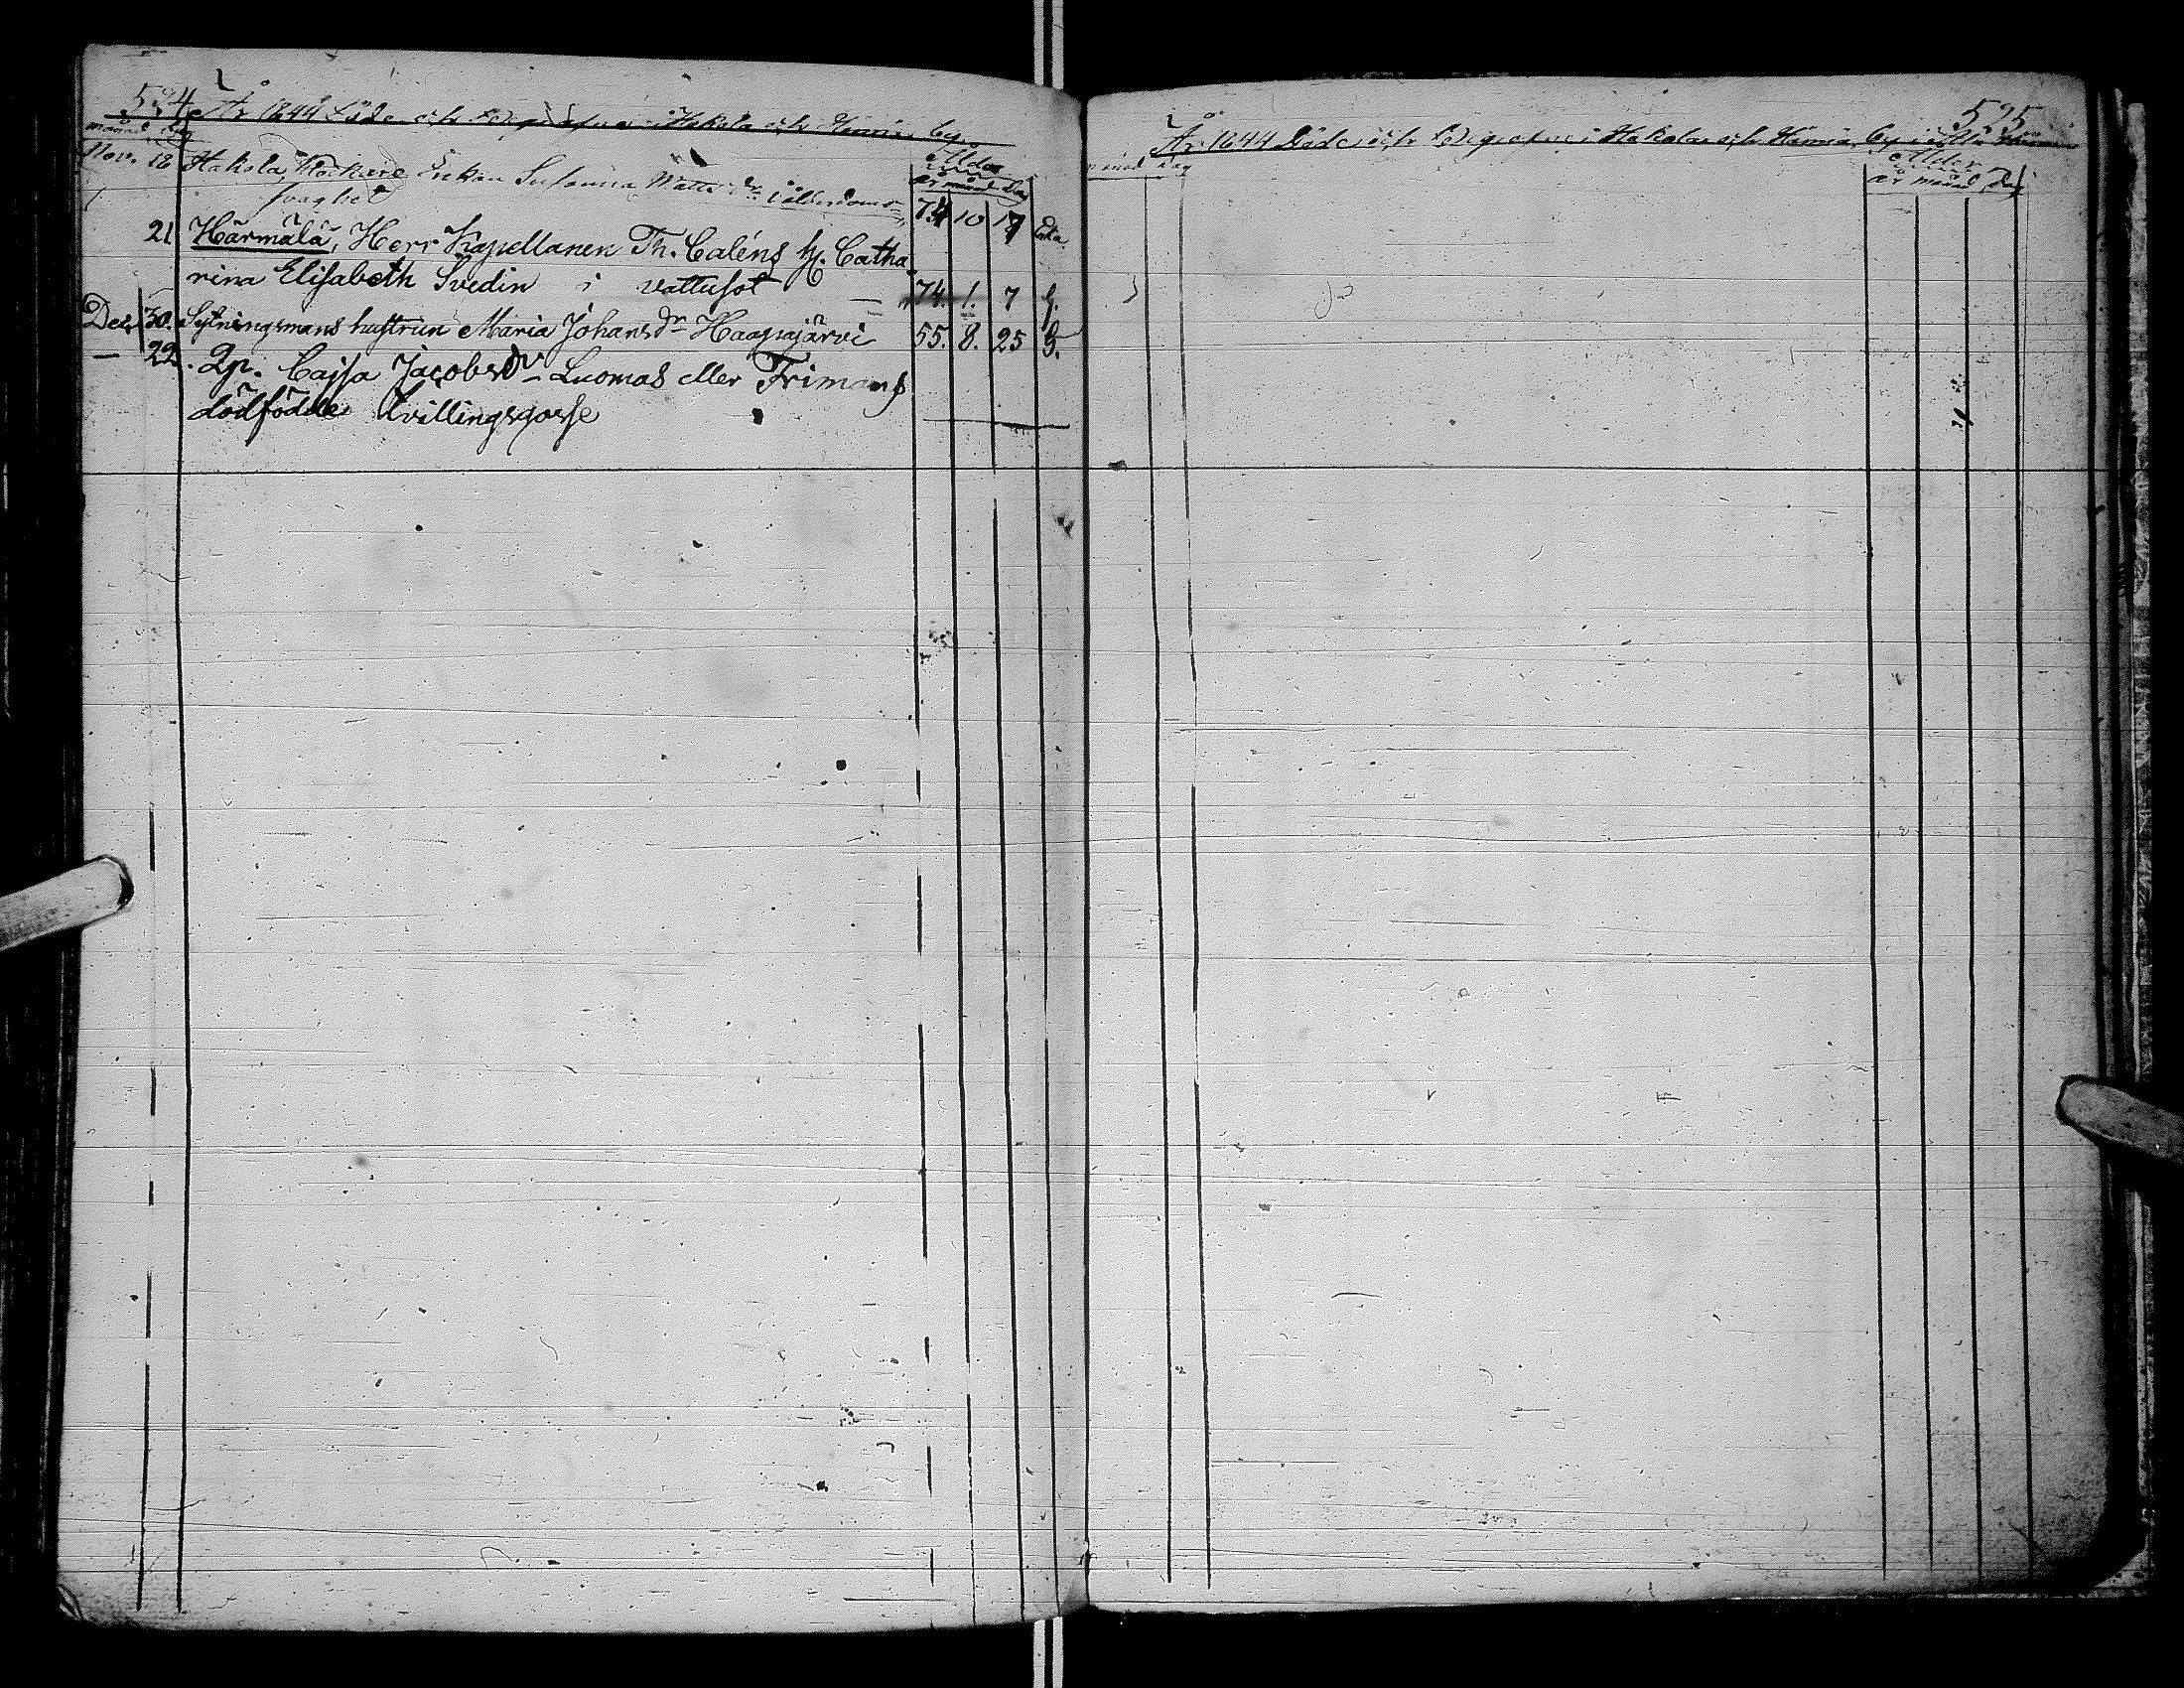 524
År 1844 Döde och begrafne i Hakola och Hännis by
månad dag
Ålder
år månad Dag
Nov. 18 Hakola, Enkan Susanna Matts dr. i ålderdoms-
svaghet 74 10 17 Enka
21 Härmälä, Herr Kapellanen Th. Caléns h. Catha
rina Elisabeth Svedin i vattusot — 74. 1. 7 G.
Dec. 30. Sytningsmans hustrun Maria Johansdr Haapajärvi 55. 8. 25 G.
— 22. Qp. Cajsa Jacobsdr Luomas eller Frimans
dödfödde tvillingsgosse
525
År 1844 Döde och begrafne i Hakola och Hännis by i
månad dag
Ålder
år månad Dag